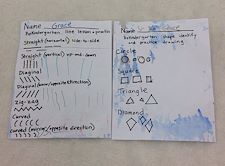 Name: Grace
Kindergarten line lesson + practice
Straight (horizontal) side-to-side
Straight (vertical) up-and-down
Diagonal
Diagonal (mirror/opposite direction)
Zig-zag
Curved
Curved (mirror/opposite direction)
Name: Grace
Kindergarten shape identify
and practice drawing
Circle
Square
Triangle
Diamond